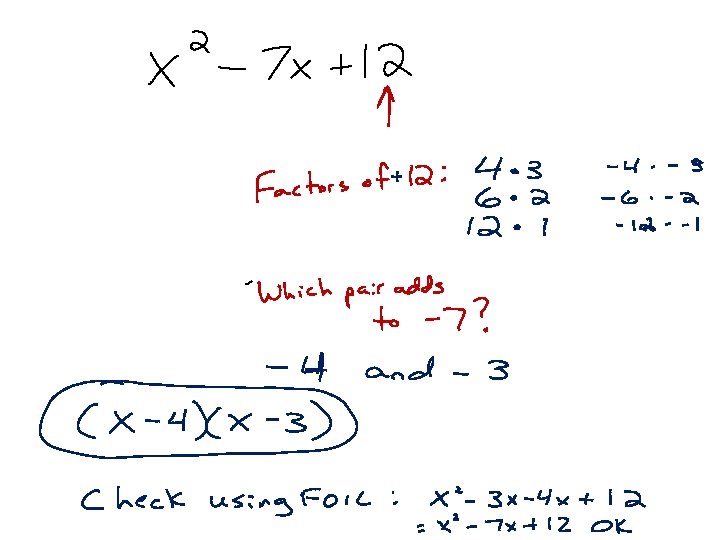 x² - 7x + 12
Factors of +12: 4 · 3 -4 · -3
6 · 2 -6 · -2
12 · 1 -12 · -1
Which pair adds
to -7?
-4 and -3
(x-4)(x-3)
Check using FOIL: x² - 3x - 4x + 12
= x² - 7x + 12 OK